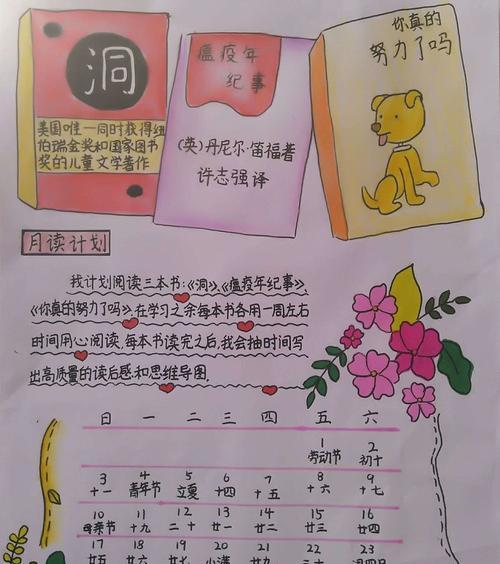 洞
美国唯一同时获得纽
伯瑞金奖和国家图书
奖的儿童文学著作
瘟疫年
纪事
(英)丹尼尔·笛福普
许志强译
你真的
努力了吗
月读计划
我计划阅读三本书:《洞》、《瘟疫年纪事》、
《你真的努力了吗》,在学习之余每本书各用一周左右
时间用心阅读,每本书读完之后,我会抽时间写
出高质量的读后感和思维导图.
日 一 二 三 四 五 六
1 2
劳动节 初十
3 4 5 6 7 8 9
十一 青年节 立夏 十四 十五 十六 十七
10 11 12 13 14 15 16
母亲节 十九 二十 廿一 廿二 廿三 廿四
17 18 19 20 21 22 23
廿五 廿六 廿七 小满 廿九 三十